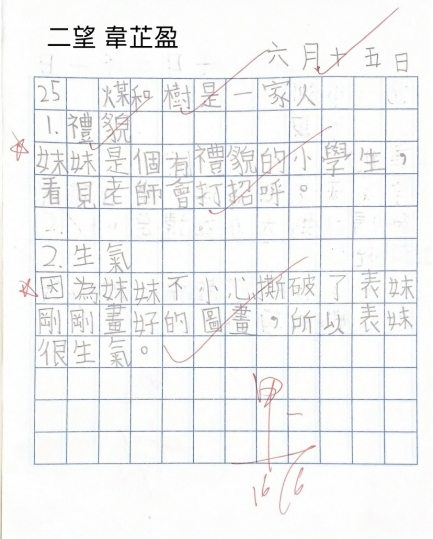 二望 韋芷盈
六月十五日
25 煤和樹是一家人
1. 禮貌
妹妹是個有禮貌的小學生，
看見老師會打招呼。
2. 生氣
因為妹妹不小心撕破了表妹
剛剛畫好的圖畫，所以表妹
很生氣。
甲-
16/6